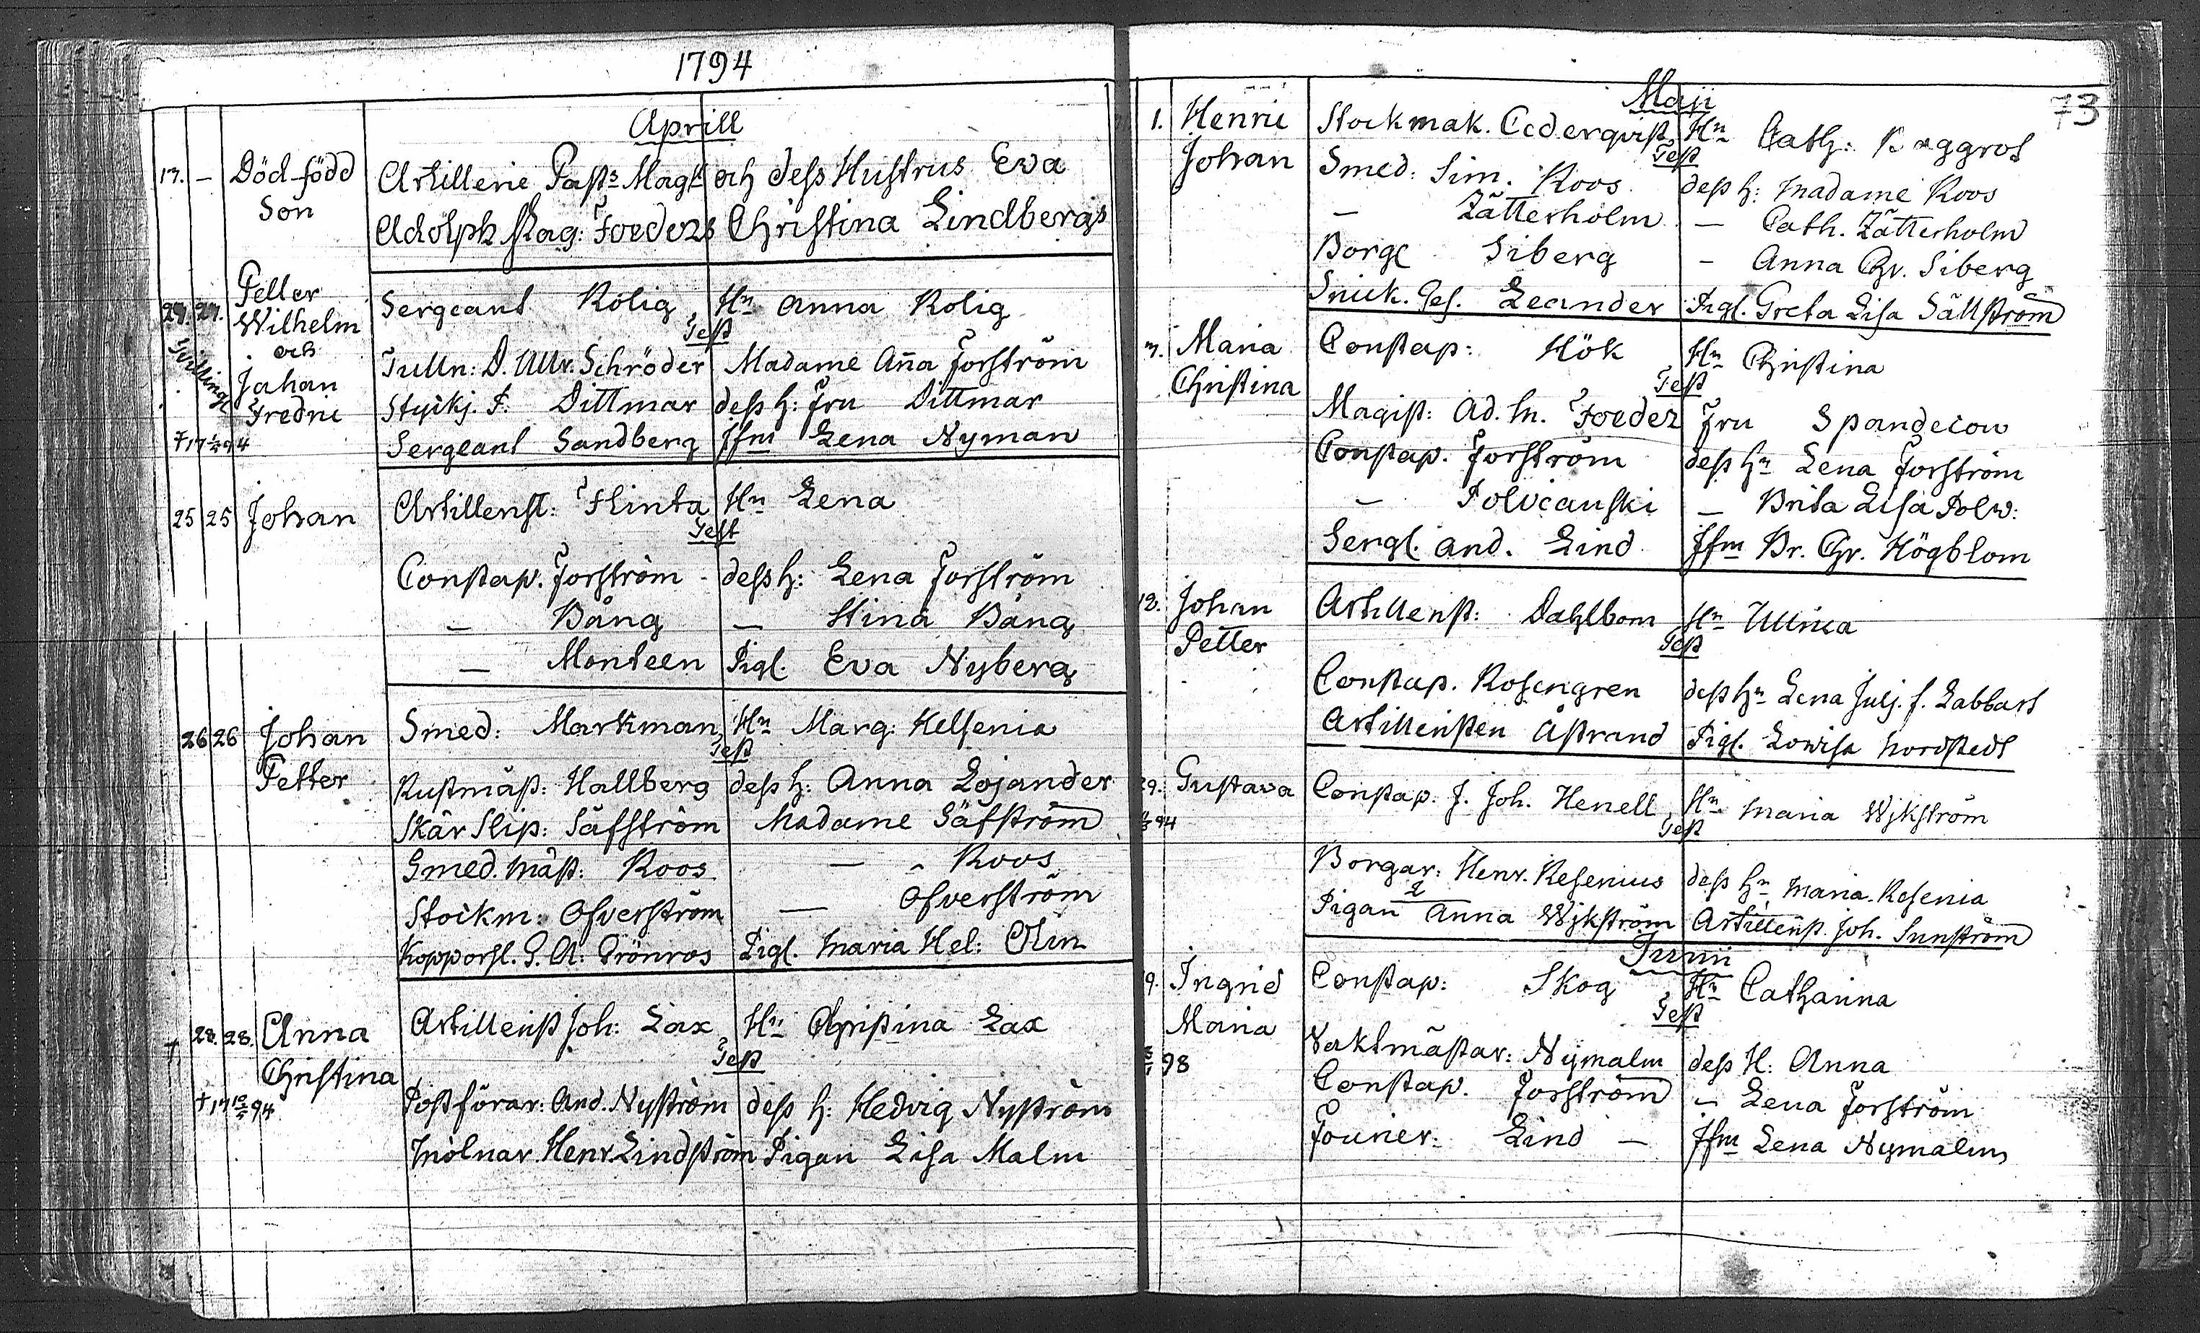 1794
Aprill
17. — Död född Artillerie Past:s Mag:s och dess Hustrus Eva
Son Adolph Mag: Foeders Christina Lindbergs
Petter
27. 27. Wilhelm Sergeant Rolig Hn Anna Rolig
Test
Tvillingr och
Johan Tulln: D. Ullr. Schröder Madame Aña Forström
Fredric Styckj. F. Dittmar dess h: Fru Dittmar
Sergeant Sandberg Jfm Lena Nyman
25 25 Johan Artillerist: Flinta Hn Lena
Test
Constap. Forström - dess h: Lena Forström
— Bång — Stina Bång
— Monteen Pigl. Eva Nyberg
26 26 Johan Smed: Markman Hn Marg: Helsenia
Test
Petter Rustmäst: Hallberg dess h: Anna Lojander
Skär Slip: Säfström Madame Säfström
Smed. mäst: Roos — Roos
Stockm: Öfverström — Öfverström
Kopporsl. G. A. Grönros Pigl. Maria Hel: Olin
28. 28. Anna Artillerist Joh: Lax Hn Christina Lax
Test
† Christina
† 17 10/5 94. Postförar: And. Nyström dess h: Hedvig Nyström
Molnar Henr Lindström Pigan Lisa Malm
73
Maji
1. Henric Stockmak. Cederqvist Hn Cath:
Test
Johan Smed: Sim. Roos dess h: Madame Roos
— Zätterholm — Cath. Zätterholm
Borgl Siberg - Anna Chr. Siberg
Snick. Ges. Leander Pigl. Greta Lisa Sällström
Maria Constap: Hök Hn Christina
Test
Christina Magist: Ad. M. Foeder Fru Spandeiow
Constap. Forström dess hn Lena Forström
— Polvianski — Brita Lisa Polw:
Sergt. And. Lind Jfm Br. Chr. Högblom
18. Johan Artillerist: Dahlbom Hn Ullrica
Test
Petter
Constap. Rosengren dess hn Lena Julj. f. Labbart
Artilleristen Åstrand Pigl. Lowisa Nordstedt
29. Gustava Constap: J. Joh. Henell Hn Maria Wjkström
Test
94
Borgar: Henr. Resenius dess hn Maria Resenia
Pigan Anna Wjkström Artillerist. Joh. Sunström
Junii
9. Ingrid Constap: Skog Hn Catharina
Test
Maria
98 Vaktmästar: Nymalm dess H: Anna
Constap. Forström - Lena Forström
Fourier: Lind — Jfm Lena Nymalm